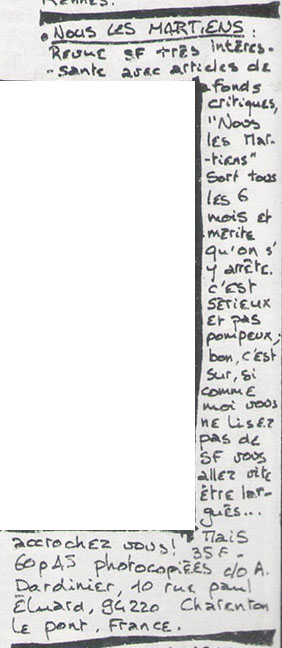 RENNES.
• NOUS LES MARTIENS :
REVUE SF TRÈS INTÉRES-
-SANTE avec articles de
fonds
critiques,
"Nous
les Mar-
-tiens"
sort tous
les 6
mois et
mérite
qu'on s'
y arrête.
c'est
sérieux
et pas
pompeux;
bon, c'est
sur, si
comme
moi vous
ne lisez
pas de
SF vous
allez vite
être lar-
gués...
accrochez vous! Mais
35F-
60pA5 photocopiées c/o A.
Dardinier, 10 rue paul
Éluard, 94220 Charenton
le pont. France.